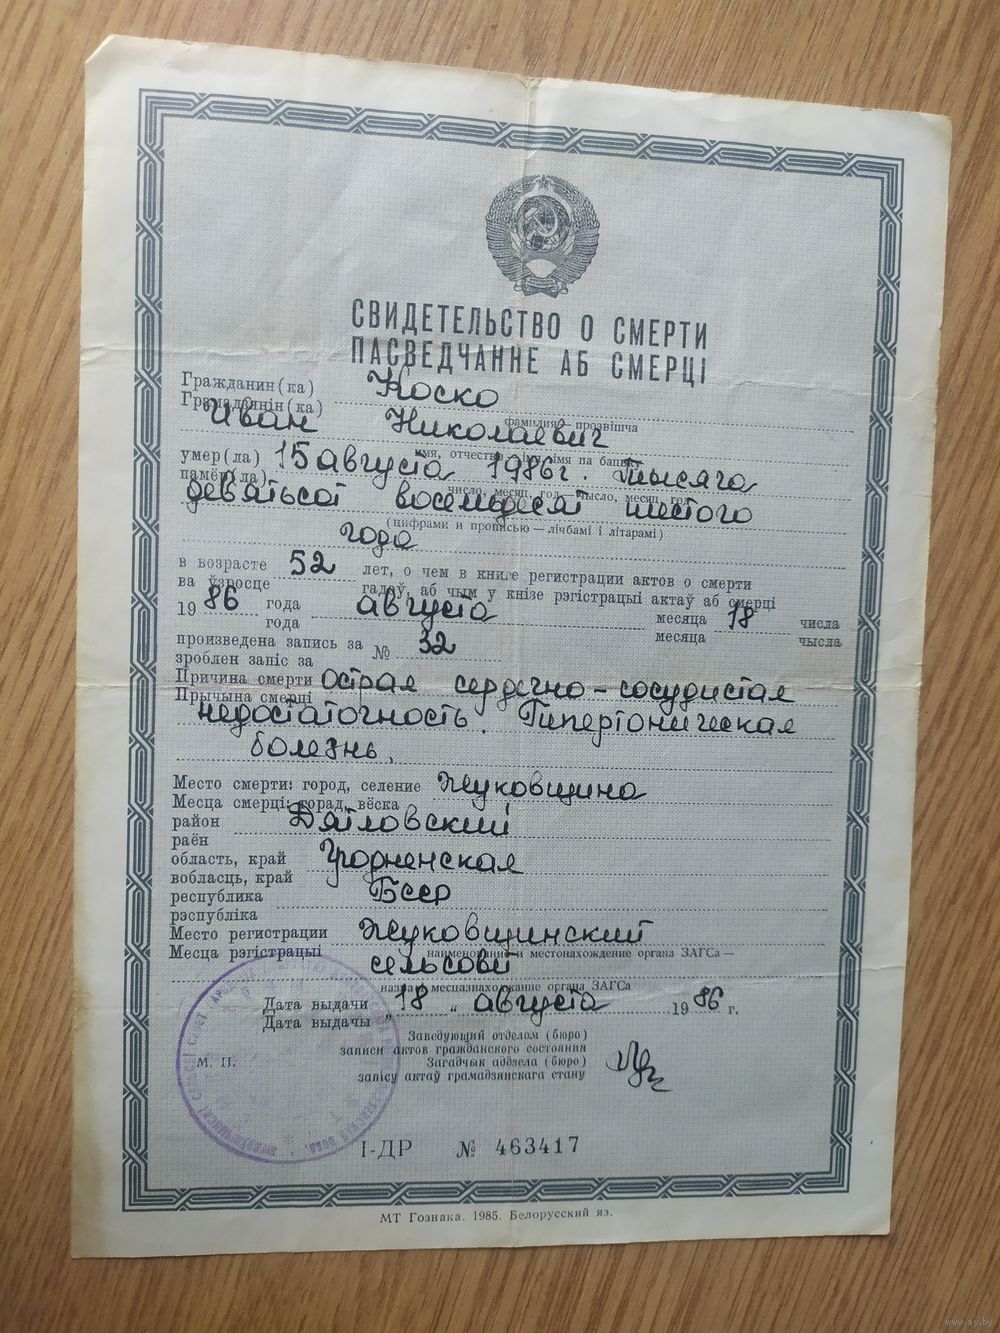 СВИДЕТЕЛЬСТВО О СМЕРТИ
ПАСВЕДЧАННЕ АБ СМЕРЦІ
Гражданин(ка) Коско
Грамадзянін(ка)
фамилия прозвішча
Иван Николаевич
имя, отчество імя, імя па бацьку
умер(ла) 15 августа 1986 г. Тысяча
памёр(ла)
число, месяц, год чысло, месяц, год
девятьсот восемдесят шестого
(цифрами и прописью — лічбамі і літарамі)
года
в возрасте 52 лет, о чем в книге регистрации актов о смерти
ва ўзросце гадоў, аб чым у кнізе рэгістрацыі актаў аб смерці
19 86 года августа месяца 18 числа
года месяца чысла
произведена запись за № 32
зроблен запіс за
Причина смерти Острая сердечно-сосудистая
Прычына смерці
недостаточность. Гипертоническая
болезнь.
Место смерти: город, селение Жуковщина
Месца смерці: горад, вёска
район Дятловский
раён
область, край Гродненская
вобласць, край
республика БССР
рэспубліка
Место регистрации Жуковщинский
Месца рэгістрацыі наименование и местонахождение органа ЗАГСа —
сельсовет
назва і месцазнаходжанне органа ЗАГСа
Дата выдачи " 18 " августа 19 86 г.
Дата выдачы
Заведующий отделом (бюро)
записи актов гражданского состояния
М. П. Загадчык аддзела (бюро)
запісу актаў грамадзянскага стану
I-ДР № 463417
МТ Гознака. 1985. Белорусский яз.
www.ay.by